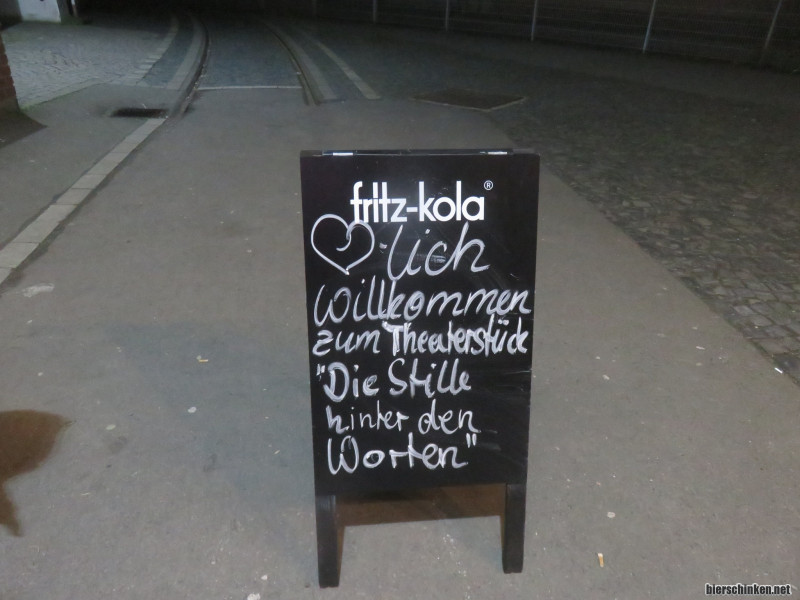 fritz-kola®
♡-lich
Willkommen
zum Theaterstück
"Die Stille
hinter den
Worten"
bierschinken.net